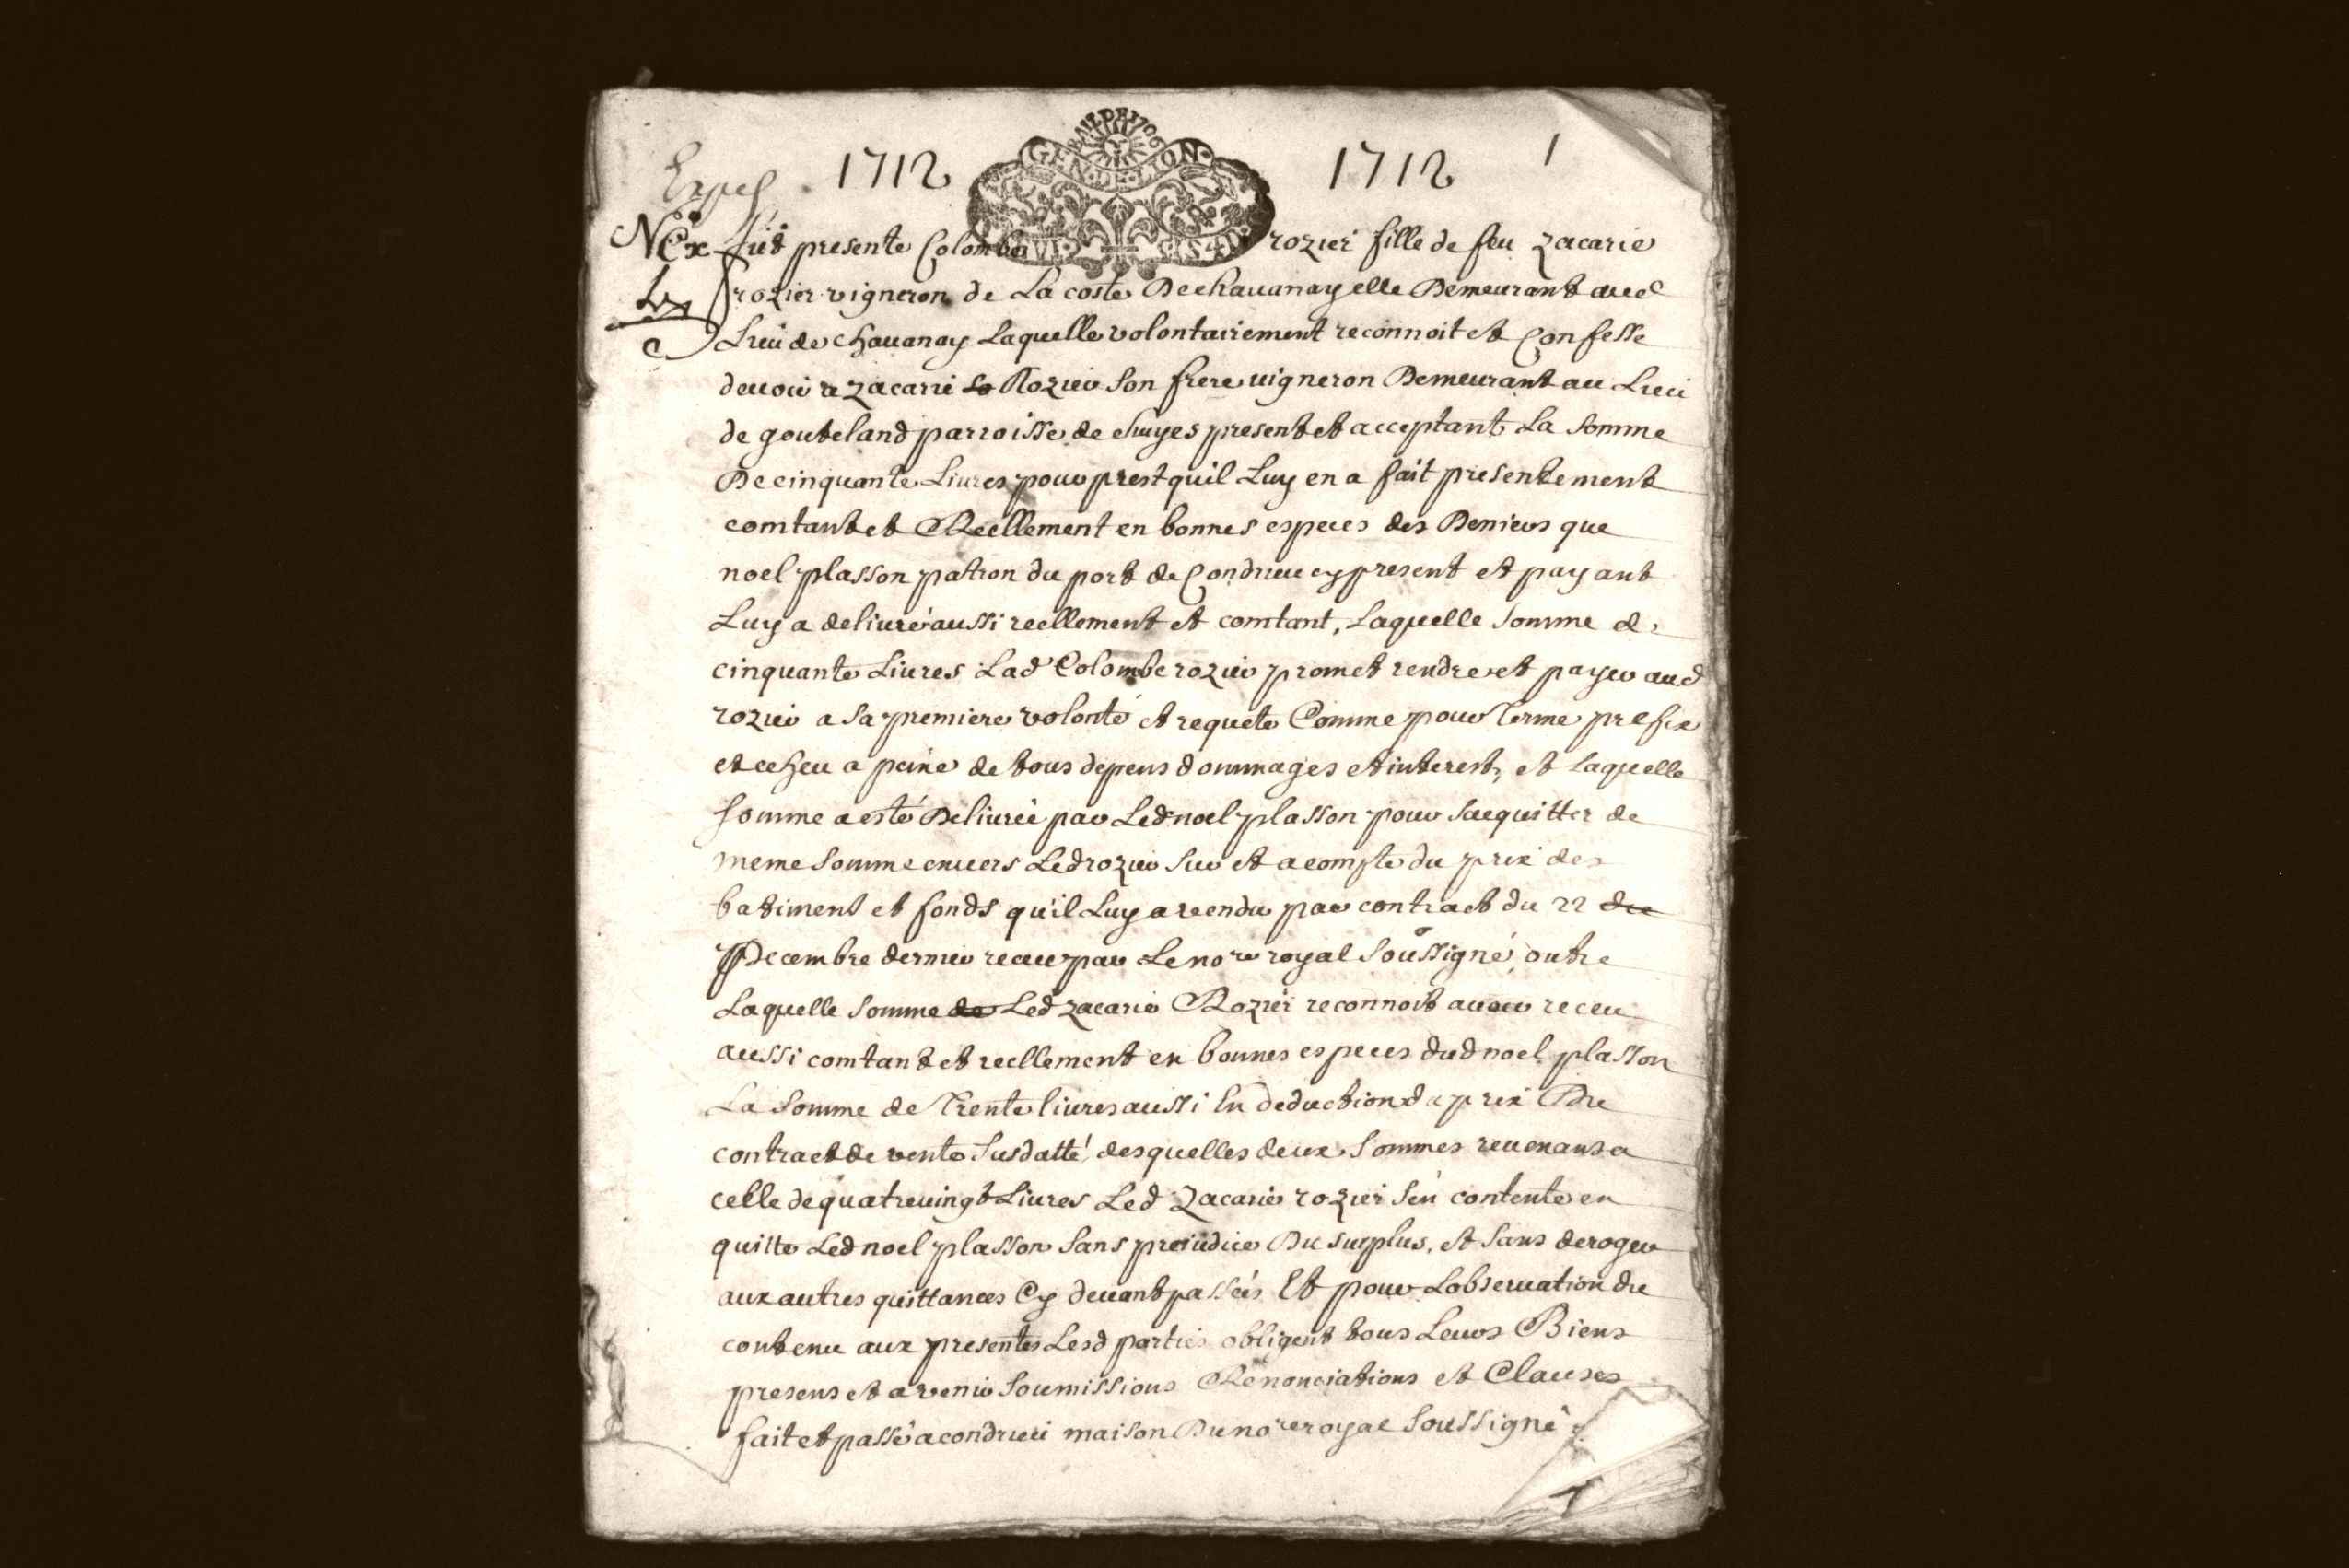 BAIL DE 1706
1712 GEN · DE · LION 1712 1
Expef
fut presente Colombe rozier fille de feu zacarie
rozier vigneron de La coste De chauanay elle Demeurant aud
Lieu de chauanay Laquelle volontairement reconnoit et Confesse
deuoir a zacarie Rozier son frere vigneron Demeurant au Lieu
de gouteland parroisse de chuyes present et acceptant La somme
De cinquante Liures pour prest quil Luy en a fait presentement
comtant et Reellement en bonnes especes des Deniers que
noel plasson patron du port de Condrieu cy present et payant
Luy a deliuré aussi reellement et comtant, Laquelle somme de
cinquante Liures Lad Colombe rozier promet rendre et payer aud
rozier a sa premiere volonté et requete Comme pour terme prefix
et echeu a peine de tous depens dommages et interests, et Laquelle
somme a esté Deliurée par Led noel plasson pour sacquitter de
meme somme enuers Led rozier sur et a compte du prix des
batiment et fonds qu'il Luy a vendu par contract du 22 de
Decembre dernier receu par Le nore royal soussigné, outre
Laquelle somme de Led zacarie Rozier reconnoit auoir receu
aussi comtant et reellement en bonnes especes dud noel plasson
La somme de Trente liures aussi En deduction du prix Du
contract de vente susdatté, desquelles deux sommes reuenans a
celle de quatreuingt Liures Led Zacarie rozier s'en contente en
quitte Led noel plasson sans preiudice Du surplus, et sans deroger
aux autres quittances Cy deuant passées Et pour Lobseruation du
contenu aux presentes Lesd parties obligent tous Leurs Biens
presens et a venir soumissions Renonciations et Clauses
fait et passé a condrieu maison Du nore royal soussigné